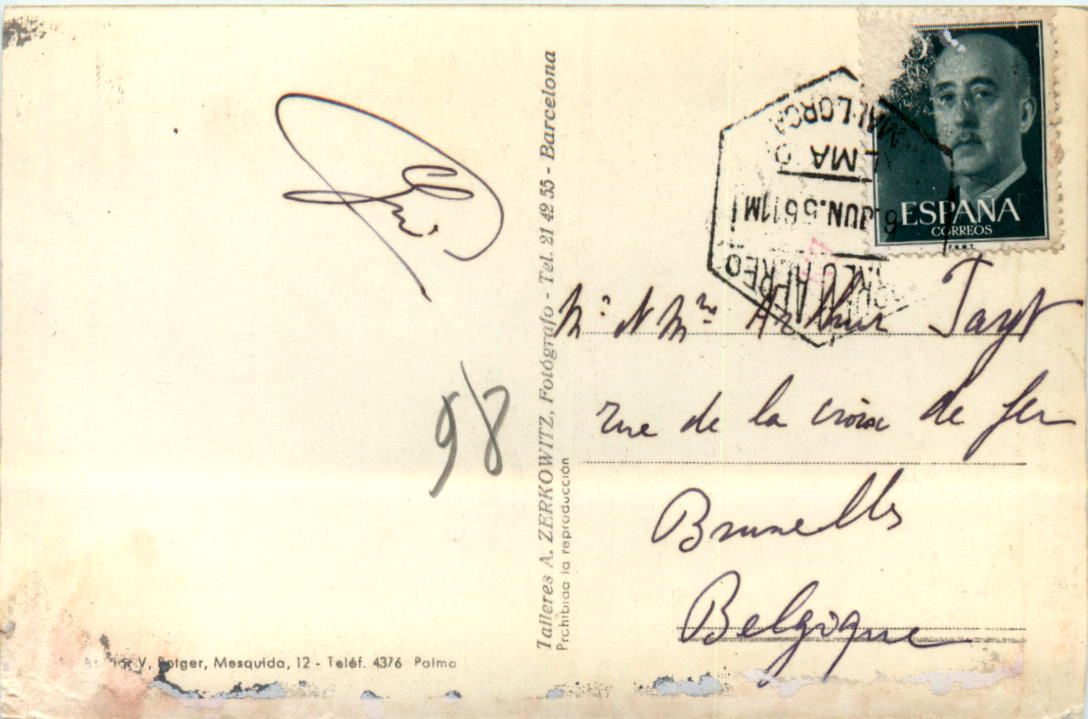 ESPAÑA
CORREOS
F.N.M.T.
MALLORCA
JUN.56 11M
AEREO
Mr & Mme Arthur
rue de la croix de fer
Bruxelles
Belgique
98
Talleres A. ZERKOWITZ, Fotógrafo - Tel. 21 42 55 - Barcelona
Prohibida la reproducción
V. Rotger, Mesquida, 12 - Teléf. 4376 Palma